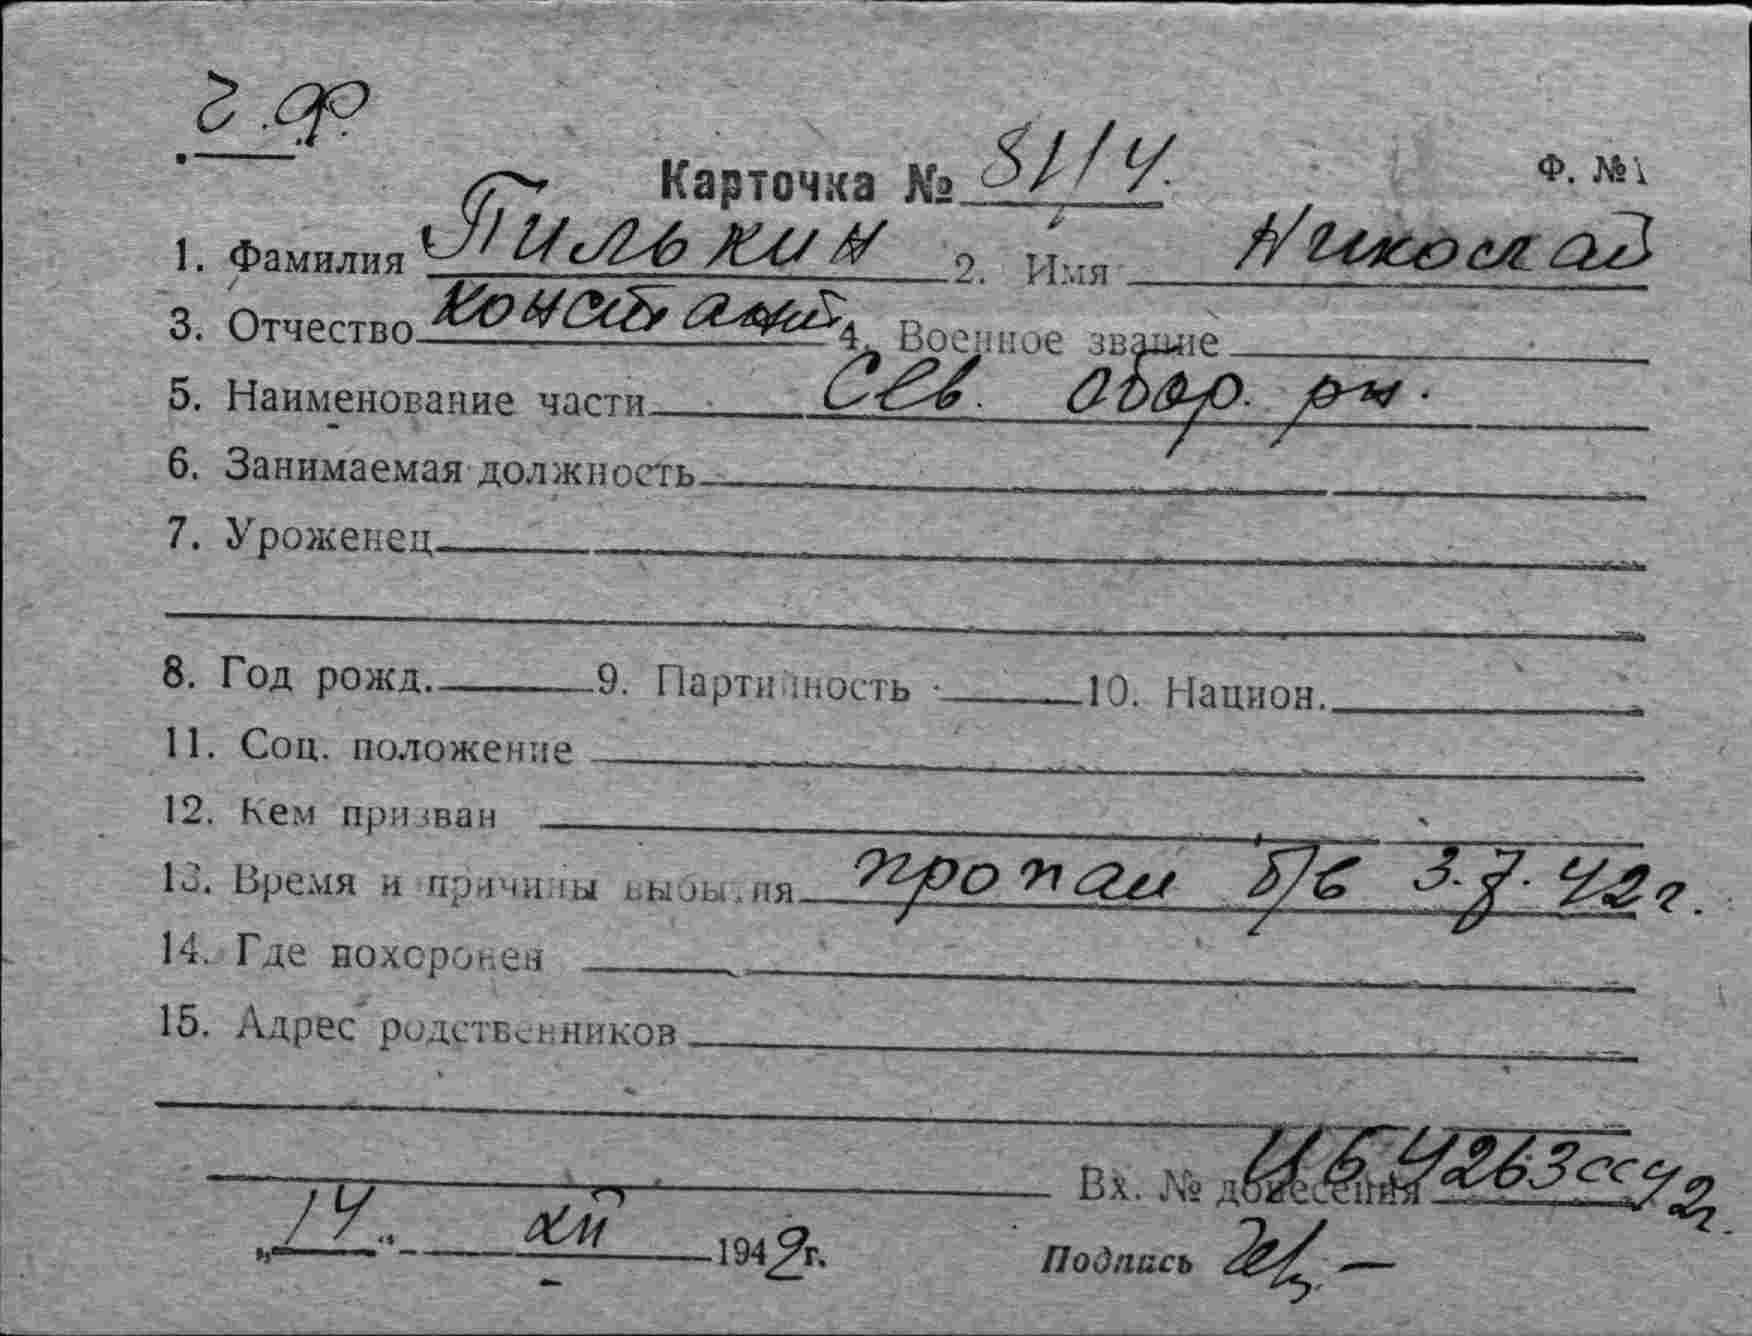 Ч.Ф.
Карточка № 81/4. Ф. №1
1. Фамилия Пилькин 2. Имя Николай
3. Отчество Констант 4. Военное звание
5. Наименование части Сев. обор. рн.
6. Занимаемая должность
7. Уроженец
8. Год рожд. 9. Партийность 10. Национ.
11. Соц. положение
12. Кем призван
13. Время и причины выбытия пропал б/в 3.7.42 г.
14. Где похоронен
15. Адрес родственников
Вх. № донесения ЦБ 4263сс 42г.
„14“ XII 1942г. Подпись